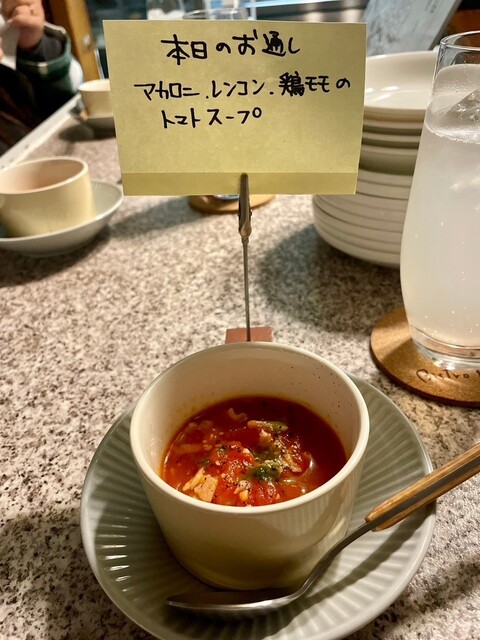 本日のお通し
マカロニ.レンコン.鶏モモの
トマトスープ